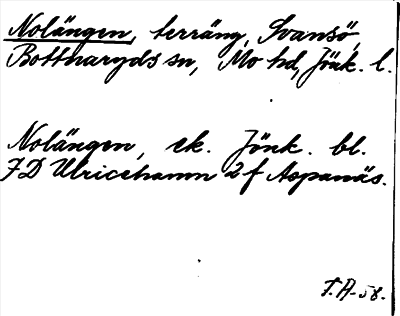 Nolängen, terräng, Svansö,
Bottnaryds sn, Mo hd, Jönk. l.
Nolängen, ek. Jönk. bl.
7D Ulricehamn 2f Aspanäs.
T.A. 58.